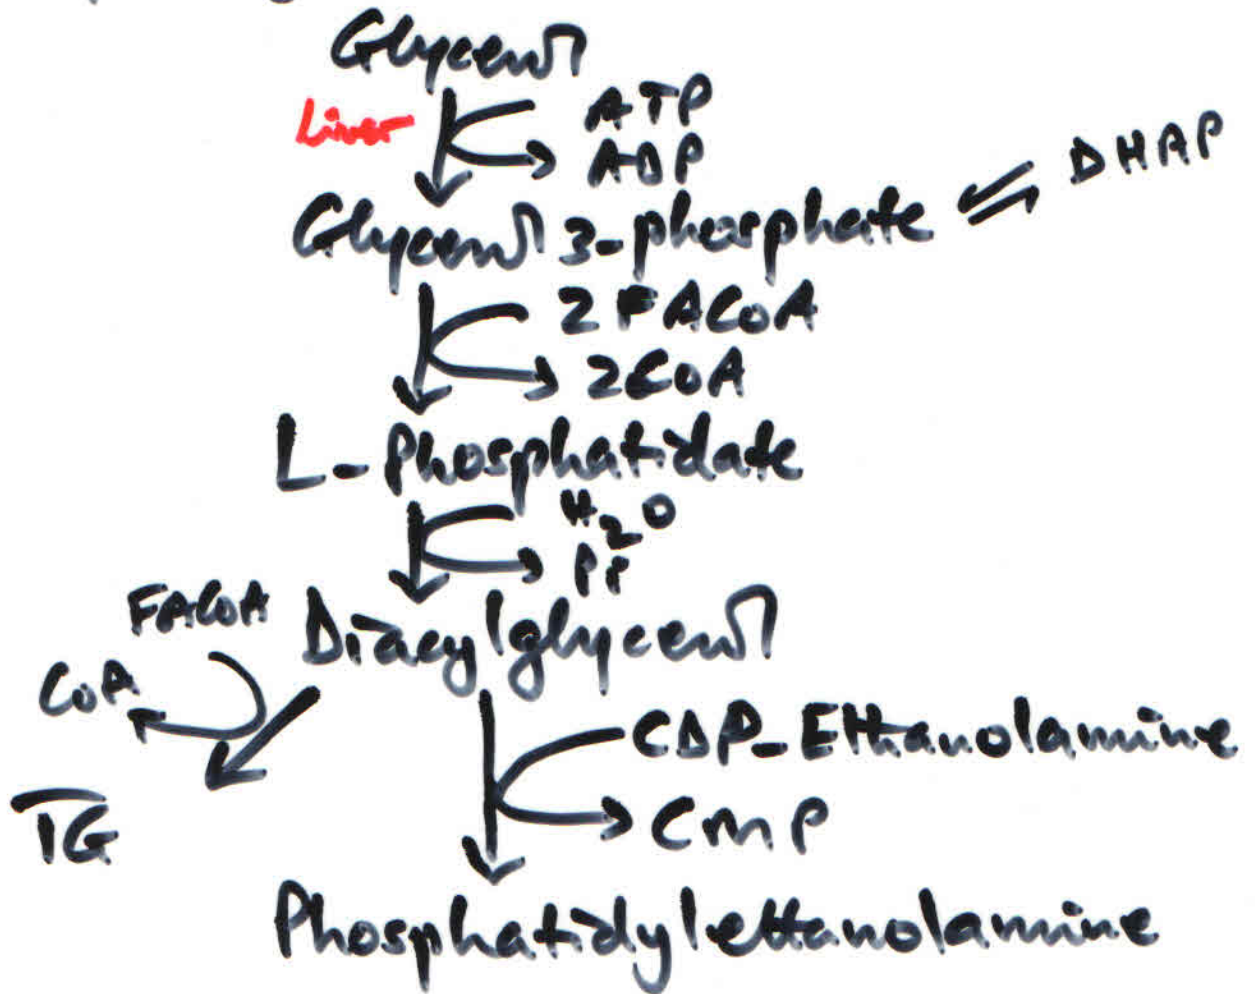 Glycerol
Liver
ATP
ADP
Glycerol 3-phosphate ⇌ DHAP
2 FACoA
2CoA
L-Phosphatidate
H₂O
Pi
FACoA
CoA
Diacylglycerol
TG
CDP-Ethanolamine
CMP
Phosphatidylethanolamine